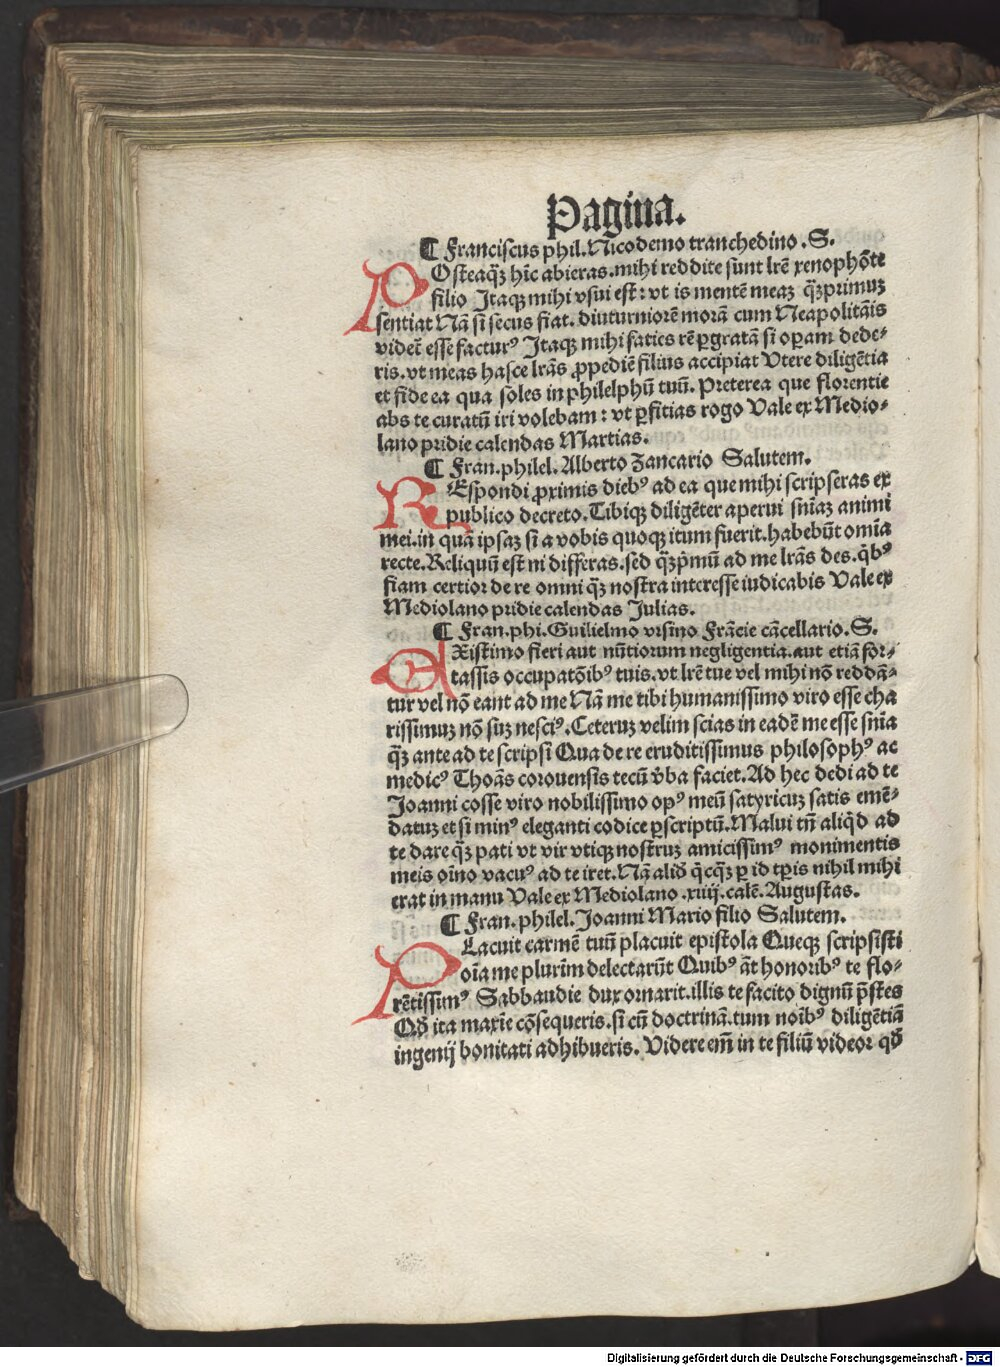 Pagina.
¶ Franciscus phil. Nicodemo tranchedino .S.
POsteaqꝫ hic abieras. mihi reddite sunt lrē xenophōte
filio Itaqꝫ mihi vsui est: vt is mentē meaꝫ qꝫprimuꝫ
sentiat Nā si secus fiat. diuturniorē morā cum Neapolitāis
videt̄ esse facturꝰ Itaqꝫ mihi facies rē ꝑgratā si oꝑam dede⸗
ris. vt meas hasce lrās ꝓpediē filius accipiat Utere diligētia
et fide ea qua soles in philelphū tuū. Preterea que florentie
abs te curatū iri volebam: vt ꝑficias rogo Vale ex Medio⸗
lano pridie calendas Martias.
¶ Fran. philel. Alberto Zancario Salutem.
REspondi ꝓximis diebꝰ ad ea que mihi scripseras ex
publico decreto. Tibiqꝫ diligēter aperui sniaꝫ animi
mei. in quā ipsaꝫ si a vobis quoqꝫ itum fuerit. habebūt omīa
recte. Reliquū est ni differas. sed qꝫpmū ad me lrās des. qbꝰ
fiam certior de re omni qꝫ nostra interesse iudicabis Vale ex
Mediolano pridie calendas Julias.
¶ Fran. phi. Guilielmo vrsino Frācie cācellario. S.
EXistimo fieri aut nūtiorum negligentia. aut etiā for⸗
tassis occupatōibꝰ tuis. vt lrē tue vel mihi nō reddā⸗
tur vel nō eant ad me Nā me tibi humanissimo viro esse cha
rissimuꝫ nō suꝫ nesciꝰ. Ceteruꝫ velim scias in eadē me esse snīa
qꝫ ante ad te scripsi Qua de re eruditissimus philosophꝰ ac
medicꝰ Thoās corouensis tecū vba faciet. Ad hec dedi ad te
Joanni cosse viro nobilissimo opꝰ meū satyricuꝫ satis emē⸗
datuꝫ et si minꝰ eleganti codice ꝑscriptū. Malui tn̄ aliqd ad
te dare qꝫ pati vt vir vtiqꝫ nostruꝫ amicissimꝰ monimentis
meis oīno vacuꝰ ad te iret. Nā aliđ qcqꝫ ꝑ id tꝑis nihil mihi
erat in manu Vale ex Mediolano .xiiij. calē. Augustas.
¶ Fran. philel. Joanni Mario filio Salutem.
PLacuit carmē tuū placuit epistola Queqꝫ scripsisti
oīa me plurīm delectarūt Quibꝰ āt honoribꝰ te flo⸗
rētissimꝰ Sabbaudie dux ornarit. illis te facito dignū p̄stes
Qđ ita maxīe cōsequeris. si cū doctrinā. tum noībꝰ diligētiā
ingenij bonitati adhibueris. Videre em̄ in te filiū videor qđ
Digitalisierung gefördert durch die Deutsche Forschungsgemeinschaft - DFG